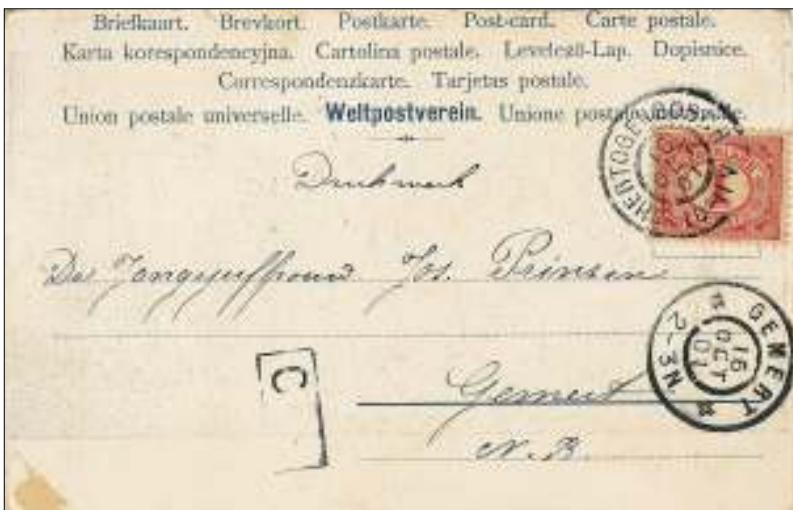 Briefkaart. Brevkort. Postkarte. Post-card. Carte postale.
Karta korespondencyjna. Cartolina postale. Levelező-Lap. Dopisnice.
Correspondenzkarte. Tarjetas postale.
Union postale universelle. Weltpostverein. Unione postale universelle.
Drukwerk
De Jongejuffrouw Jos. Prinsen
Gemert
N. B.
C
HERTOGENBOSCH
GEMERT
16
OCT
01
2-3N